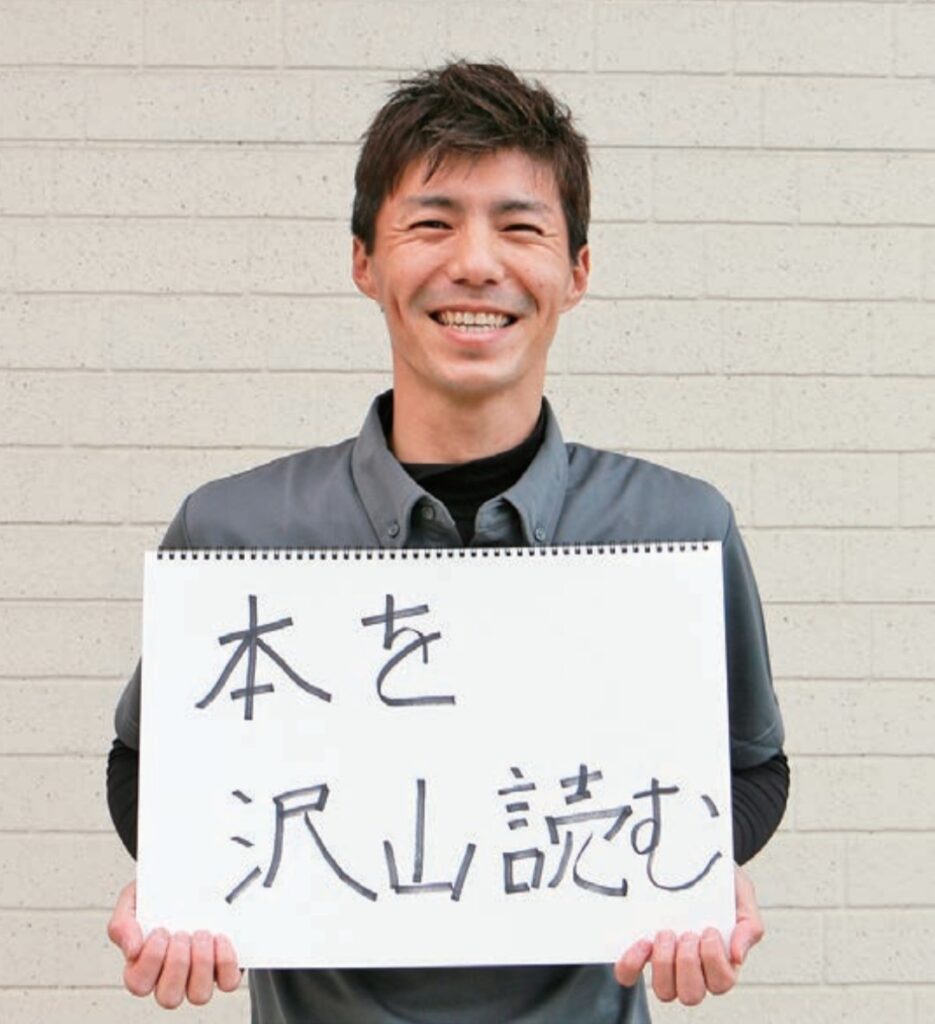 本を
沢山読む